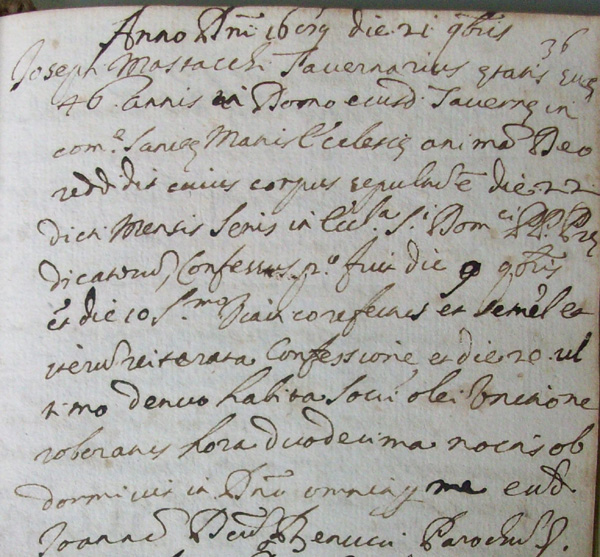 Anno Dni die 21
36
Joseph Mastacchi Tavernarius ętatis suę
46 annis in Domo eiusd Tavernę in
com.e Sanctę Marię Ecclesię animã Deo
reddidit cuius corpus sepultũ ẽ die 22
dicti Mensis Senis in Eccl.a S.i Dom.ci PP. Prę
dicatorũ, Confessus p.o fuit die 9
et die 10 S.mo Viatico refectus et semel et
iterũ reiterata Confessione et die 20 ul
timo denuo habita olei Unctione
roboratus hora duodecima noctis ob
dormivit in Dno me eud
Joanne Parochũ